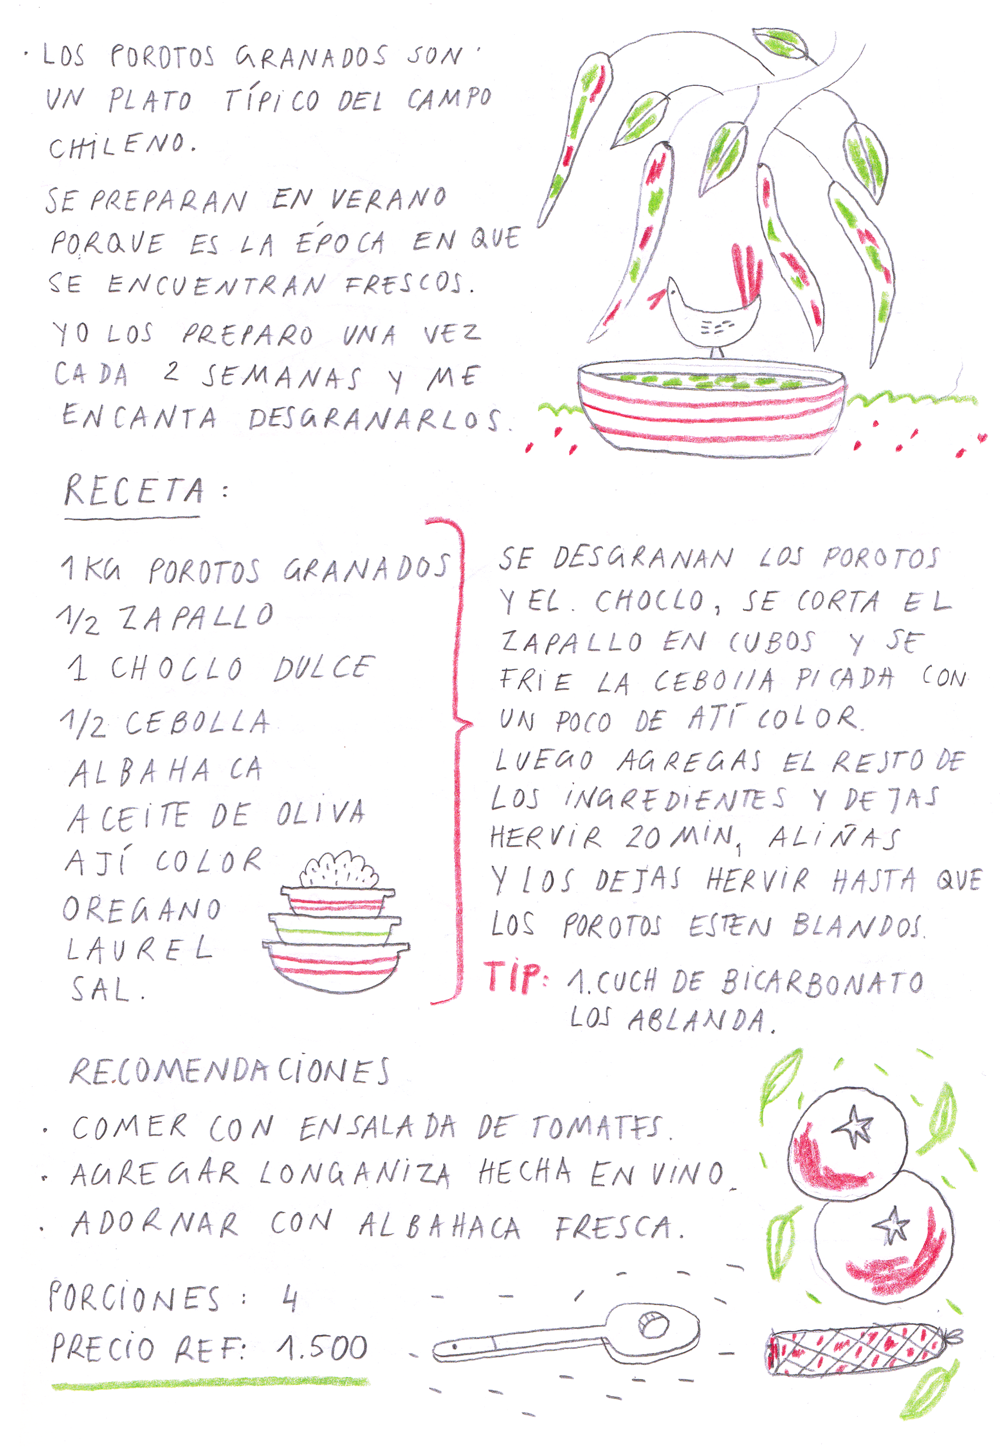 · LOS POROTOS GRANADOS SON
UN PLATO TÍPICO DEL CAMPO
CHILENO.
SE PREPARAN EN VERANO
PORQUE ES LA ÉPOCA EN QUE
SE ENCUENTRAN FRESCOS.
YO LOS PREPARO UNA VEZ
CADA 2 SEMANAS Y ME
ENCANTA DESGRANARLOS.
RECETA:
1 KG POROTOS GRANADOS
1/2 ZAPALLO
1 CHOCLO DULCE
1/2 CEBOLLA
ALBAHACA
ACEITE DE OLIVA
AJÍ COLOR
OREGANO
LAUREL
SAL.
SE DESGRANAN LOS POROTOS
Y EL. CHOCLO, SE CORTA EL
ZAPALLO EN CUBOS Y SE
FRIE LA CEBOLLA PICADA CON
UN POCO DE AJÍ COLOR.
LUEGO AGREGAS EL RESTO DE
LOS INGREDIENTES Y DEJAS
HERVIR 20 MIN, ALIÑAS
Y LOS DEJAS HERVIR HASTA QUE
LOS POROTOS ESTEN BLANDOS.
TIP: 1.CUCH DE BICARBONATO
LOS ABLANDA.
RECOMENDACIONES
· COMER CON ENSALADA DE TOMATES.
· AGREGAR LONGANIZA HECHA EN VINO.
· ADORNAR CON ALBAHACA FRESCA.
PORCIONES: 4
PRECIO REF: 1.500